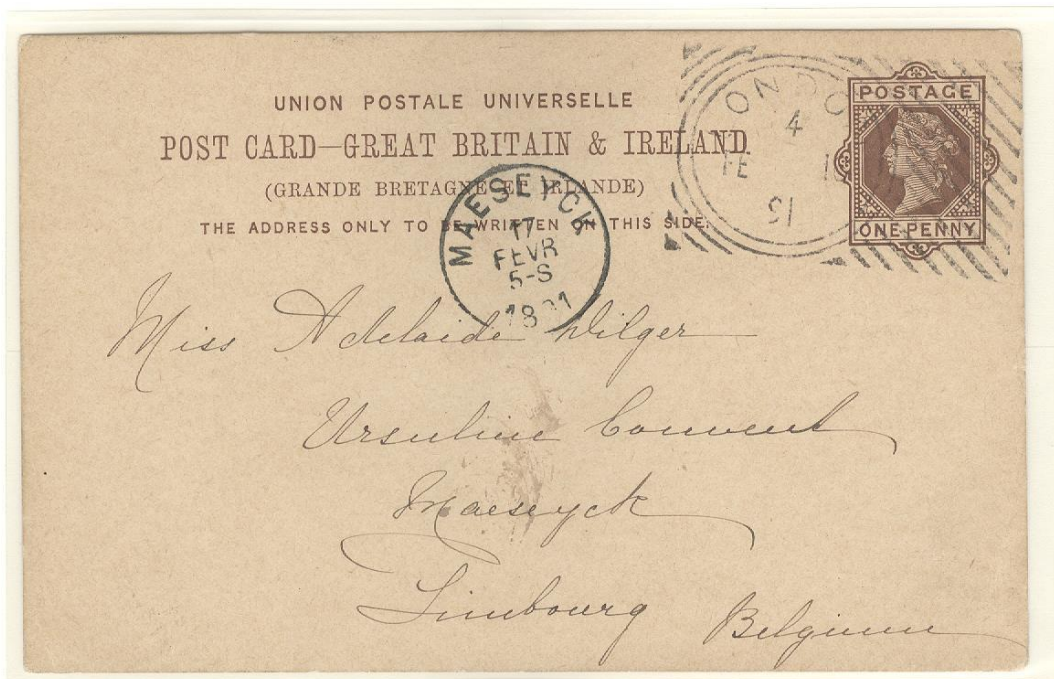 UNION POSTALE UNIVERSELLE
POST CARD—GREAT BRITAIN & IRELAND
(GRANDE BRETAGNE ET IRLANDE)
THE ADDRESS ONLY TO BE WRITTEN ON THIS SIDE.
POSTAGE
ONE PENNY
ONDO
4
FE 1
91
MAESEYCK
17
FEVR
5-S
Miss Adelaide Wilger
Ursuline Convent
Maeseyck
Limbourg Belgium